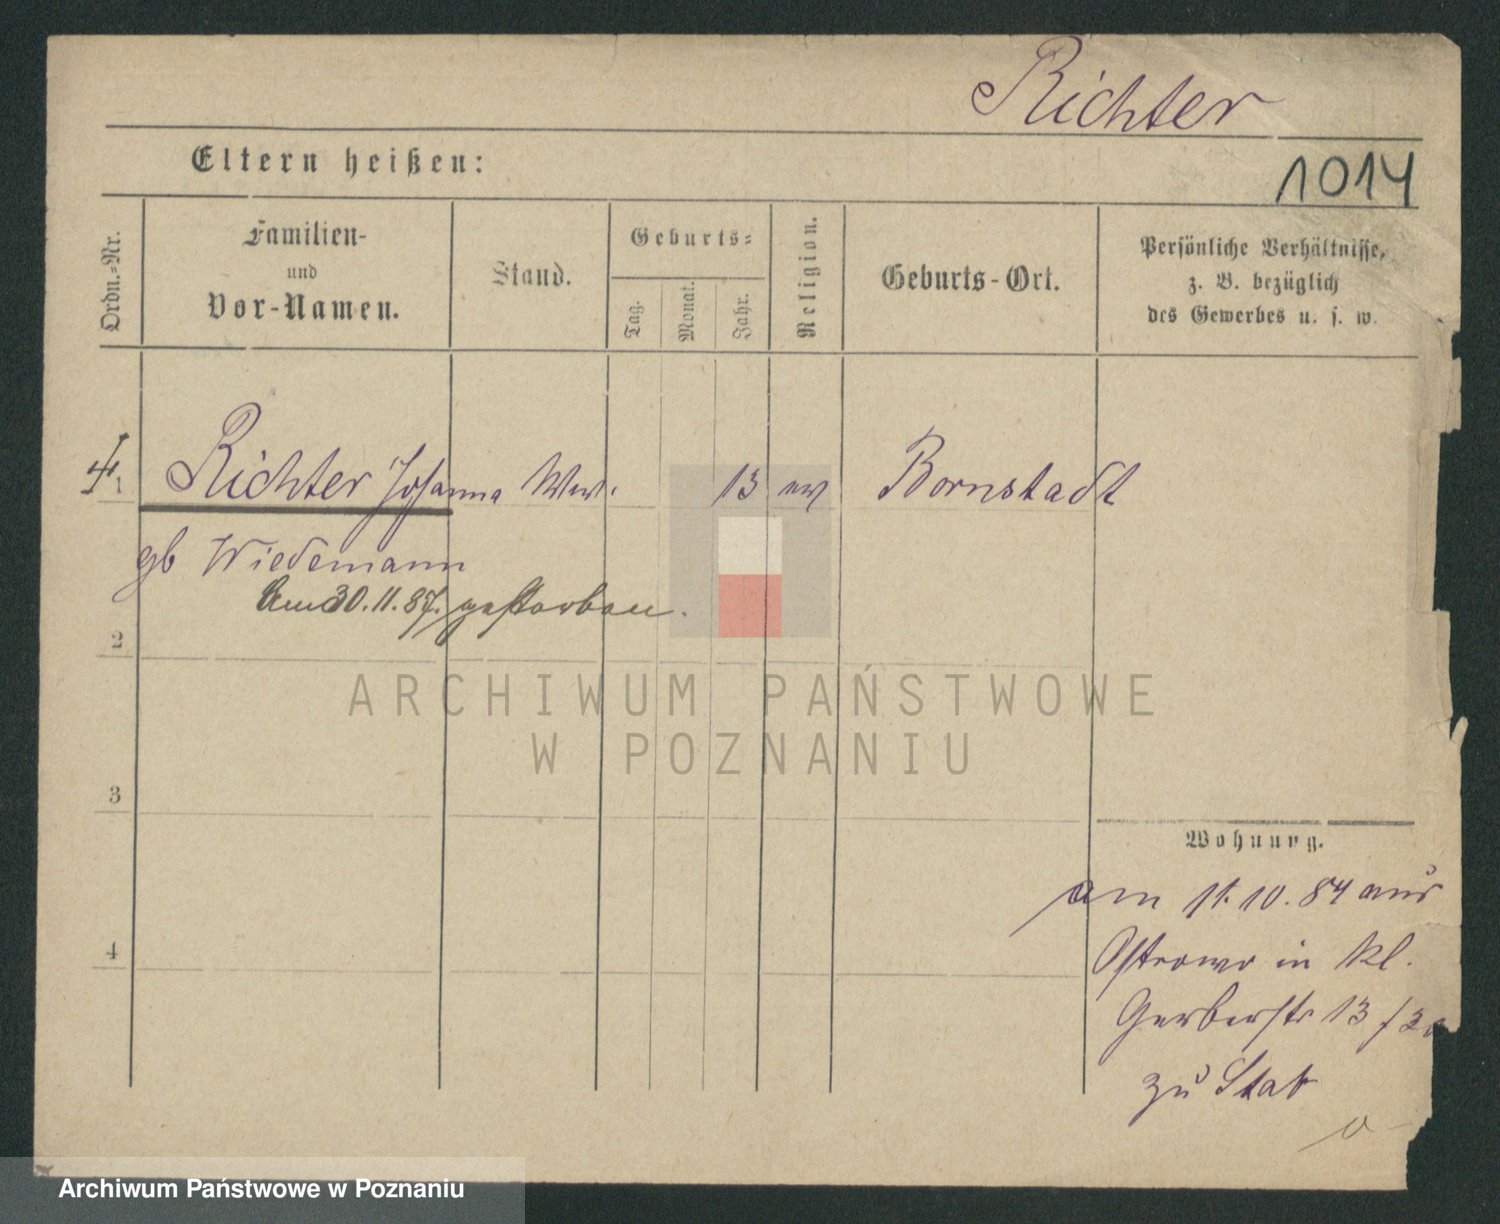 Richter
Eltern heißen:
1014
Ordn.=Nr.
Familien-
und
Vor-Namen.
Stand.
Geburts=
Tag.
Monat.
Jahr.
Religion.
Geburts-Ort.
Persönliche Verhältnisse,
z. B. bezüglich
des Gewerbes u. s. w.
1 Richter Johanna Wwe. 13 ev Bornstadt
gb Wiedemann
Am 30.11.87. gestorben.
2
ARCHIWUM PAŃSTWOWE
W POZNANIU
3
Wohnung.
am 11.10.84 aus
Ostrowo in kl.
4
Gerberstr 13
zu Stab
Archiwum Państwowe w Poznaniu